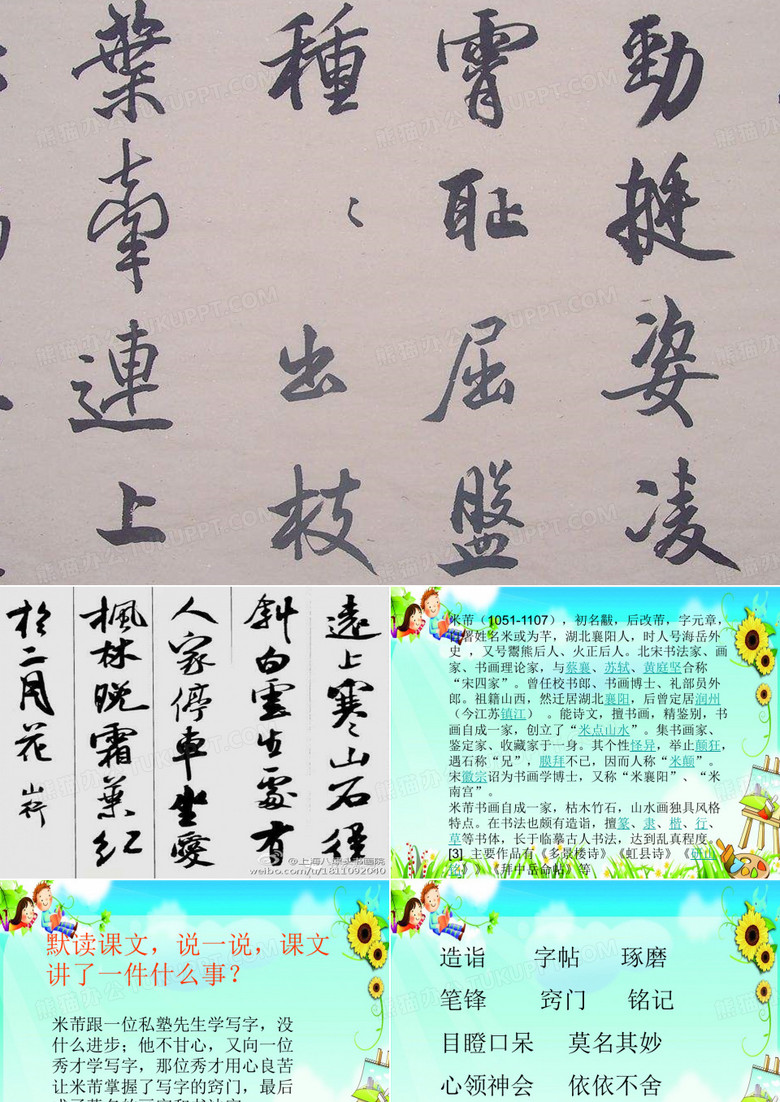 勁挺姿凌
霄耻屈盤
種〻出枝
葉南連上
遠上寒〻山石徑
斜白雲生處有
人家停車坐愛
楓林晚霜葉紅
於二月花 山行
weibo.com/u/1811092040
米芾（1051-1107），初名黻，后改芾，字元章，
自署姓名米或为芊，湖北襄阳人，时人号海岳外
史，又号鬻熊后人、火正后人。北宋书法家、画
家、书画理论家，与蔡襄、苏轼、黄庭坚合称
“宋四家”。曾任校书郎、书画博士、礼部员外
郎。祖籍山西，然迁居湖北襄阳，后曾定居润州
（今江苏镇江）。能诗文，擅书画，精鉴别，书
画自成一家，创立了“米点山水”。集书画家、
鉴定家、收藏家于一身。其个性怪异，举止颠狂，
遇石称“兄”，膜拜不已，因而人称“米颠”。
宋徽宗诏为书画学博士，又称“米襄阳”、“米
南宫”。
米芾书画自成一家，枯木竹石，山水画独具风格
特点。在书法也颇有造诣，擅篆、隶、楷、行、
草等书体，长于临摹古人书法，达到乱真程度。
[3] 主要作品有《多景楼诗》《虹县诗》《研山
铭》》《拜中岳命帖》等
默读课文，说一说，课文
讲了一件什么事？
米芾跟一位私塾先生学写字，没
什么进步；他不甘心，又向一位
秀才学写字，那位秀才用心良苦
让米芾掌握了写字的窍门，最后
造诣 字帖 琢磨
笔锋 窍门 铭记
目瞪口呆 莫名其妙
心领神会 依依不舍